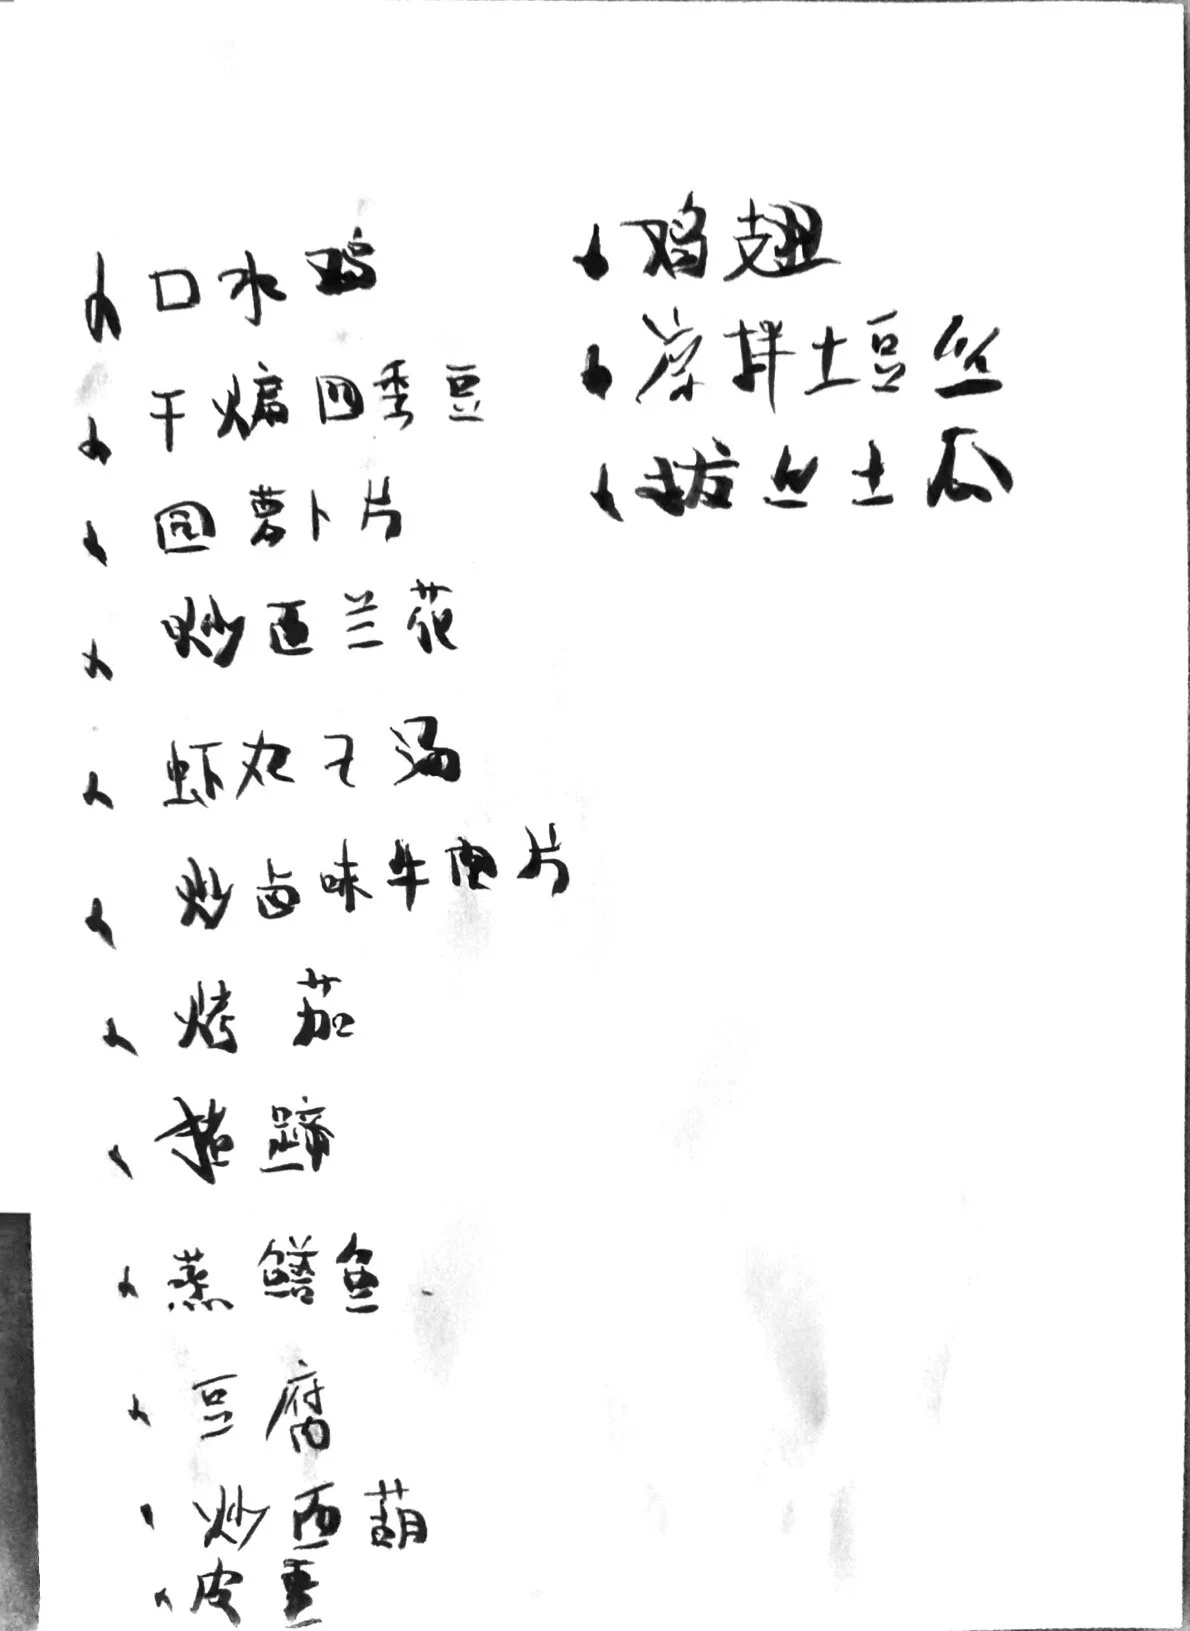 口水鸡
干煸四季豆
圆萝卜片
炒西兰花
虾丸子汤
炒卤味牛肉片
烤茄
猪蹄
蒸鳝鱼
豆腐
炒西葫
皮蛋
鸡翅
凉拌土豆丝
拔丝土瓜